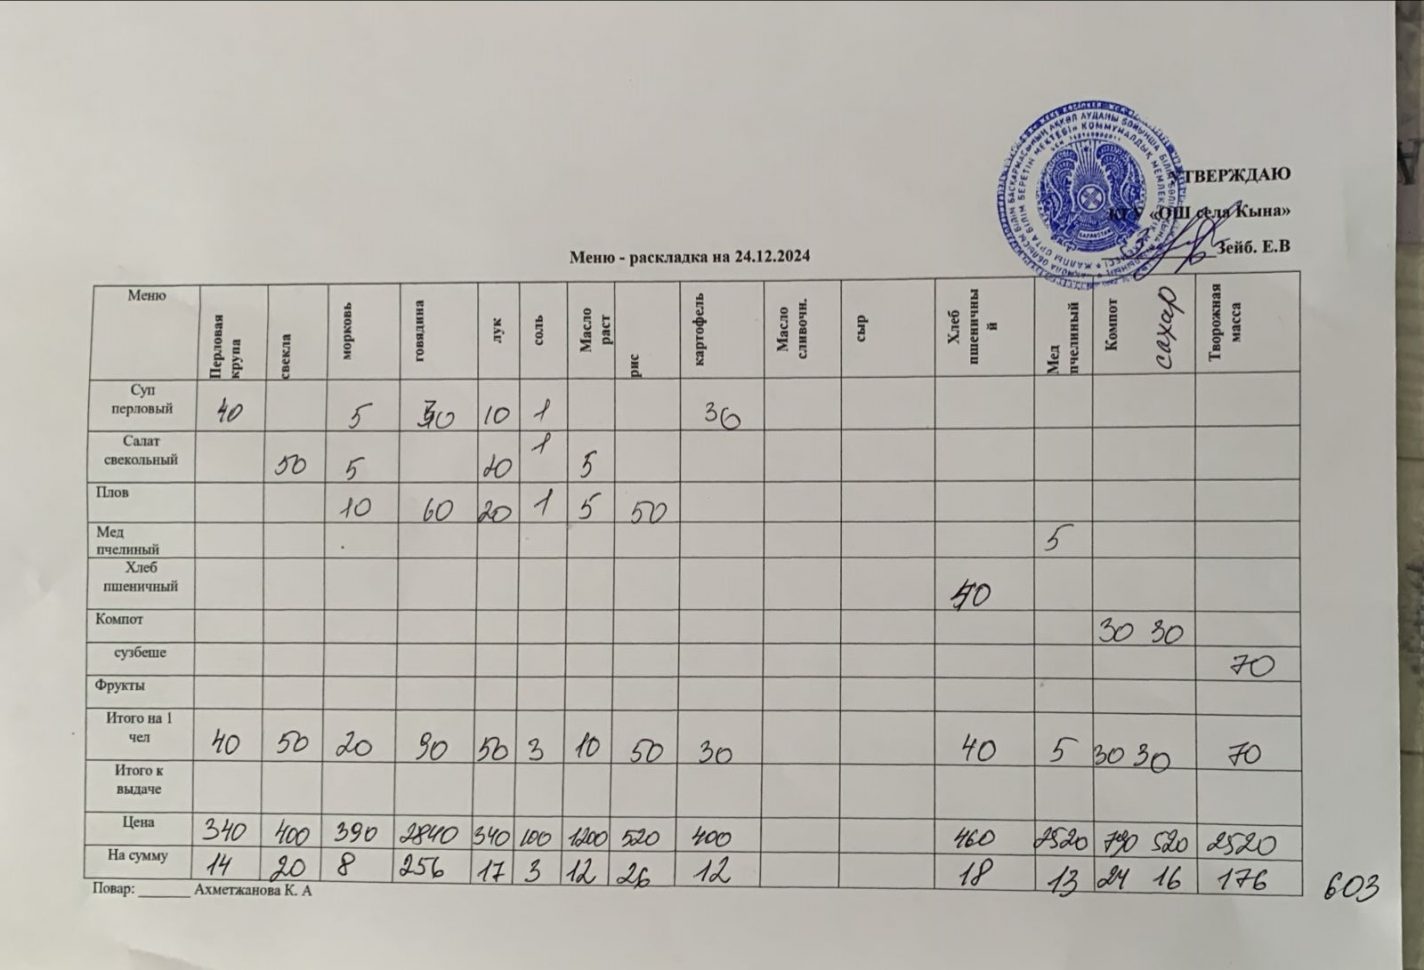 ТВЕРЖДАЮ
КГУ «ОШ села Кына»
Зейб. Е.В
Меню - раскладка на 24.12.2024
Меню Перловая крупа свекла морковь говядина лук соль Масло раст рис картофель Масло сливочн. сыр Хлеб пшеничны й Мед пчелиный Компот сахар Творожная масса
Суп перловый 40 5 30 10 1 30
Салат свекольный 50 5 20 1 5
Плов 10 60 20 1 5 50
Мед пчелиный 5
Хлеб пшеничный 40
Компот 30 30
сузбеше 70
Фрукты
Итого на 1 чел 40 50 20 90 50 3 10 50 30 40 5 30 30 70
Итого к выдаче
Цена 340 400 390 2840 340 100 1200 520 400 460 2520 790 520 2520
На сумму 14 20 8 256 17 3 12 26 12 18 13 24 16 176 603
Повар: ______ Ахметжанова К. А